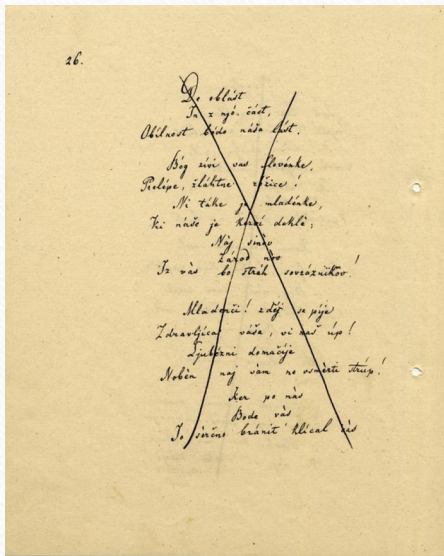 26.
De oblást
In z njó část,
Obílnost bódo náša lást.
Bóg živi vas Slovénke,
Prelépe, žláhtne róžice!
Ni táke je mladénke,
Ki náše je kerví deklè;
Náj sinóv
Zárod nòv
Iz vàs bo stráh sovrážnikov!
Mladenči! zdéj se píje
Zdravljíca váša, vi naš úp!
Ljubézni domačíje
Nobèn naj vàm ne osmèrti strúp!
Ker po nàs
Bode vàs
Jo sèrčno bránit' klícal čàs